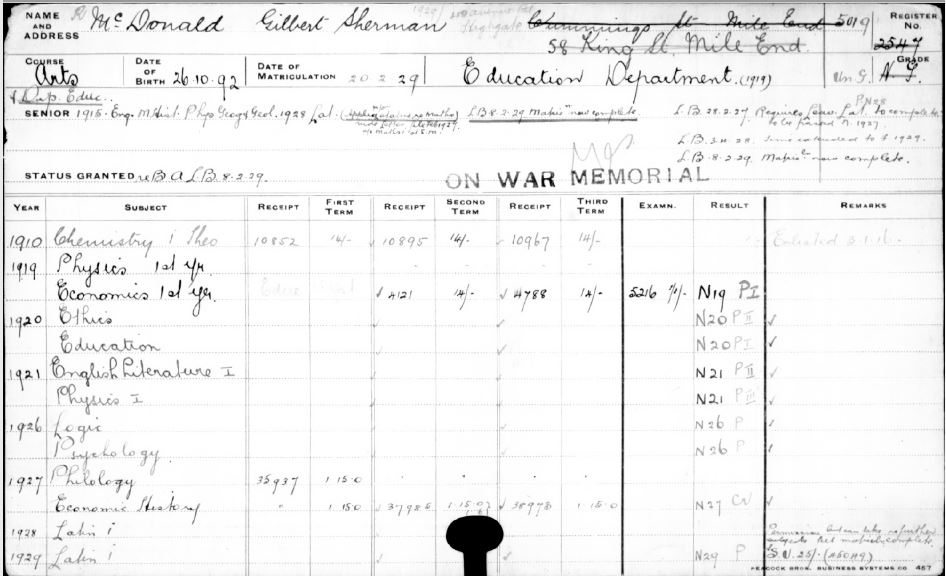 NAME AND ADDRESS McDonald Gilbert Sherman Cummings St Mile End 5019 REGISTER No.
58 King St. Mile End. 2547
COURSE Arts DATE OF BIRTH 26.10.92 DATE OF MATRICULATION 20.2.29 Education Department. (1919) GRADE
& Dip. Educ.
SENIOR 1915 - Eng. M Hist. Phys Geog & Geol. 1928 Lat. L.B. 8-2-29 Matric now complete L.B. 28.2.27. Requires Leav. Lat. to complete
to be passed in 1927.
L.B. 8.2.29. Matric now complete.
STATUS GRANTED re B A L B. 8.2.29.
ON WAR MEMORIAL
YEAR SUBJECT RECEIPT FIRST TERM RECEIPT SECOND TERM RECEIPT THIRD TERM EXAMN. RESULT REMARKS
1910 Chemistry i Theo 10852 14/- 10895 14/- 10967 14/- Enlisted 3.1.16.
1919 Physics 1st yr.
Economics 1st yr. 4121 14/- 4788 14/- 5216 N19 PI
1920 Ethics N20 PII
Education N20 PI
1921 English Literature I N21 PII
Physics I N21 PIII
1926 Logic N26 P
Psychology N26 P
1927 Philology 35937 1 15.0
Economic History " 1 15.0 37985 1 15.0 38978 1 15.0 N27 CV
1928 Latin i
1929 Latin i N29 P S.V. 25/- (A50119)
PEACOCK BROS. BUSINESS SYSTEMS CO 457